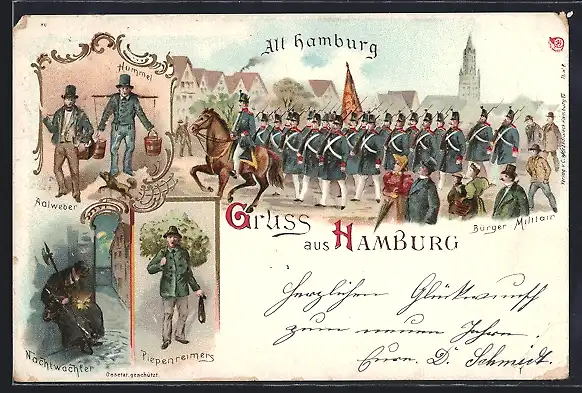 Alt Hamburg
Hummel
Aalweber
Gruss
aus Hamburg
Bürger Militair
Nachtwächter
Piepenreimers
Gesetzl. geschützt.
Herzlichen Glückwunsch
zum neuen Jahre.
D. Schmidt.